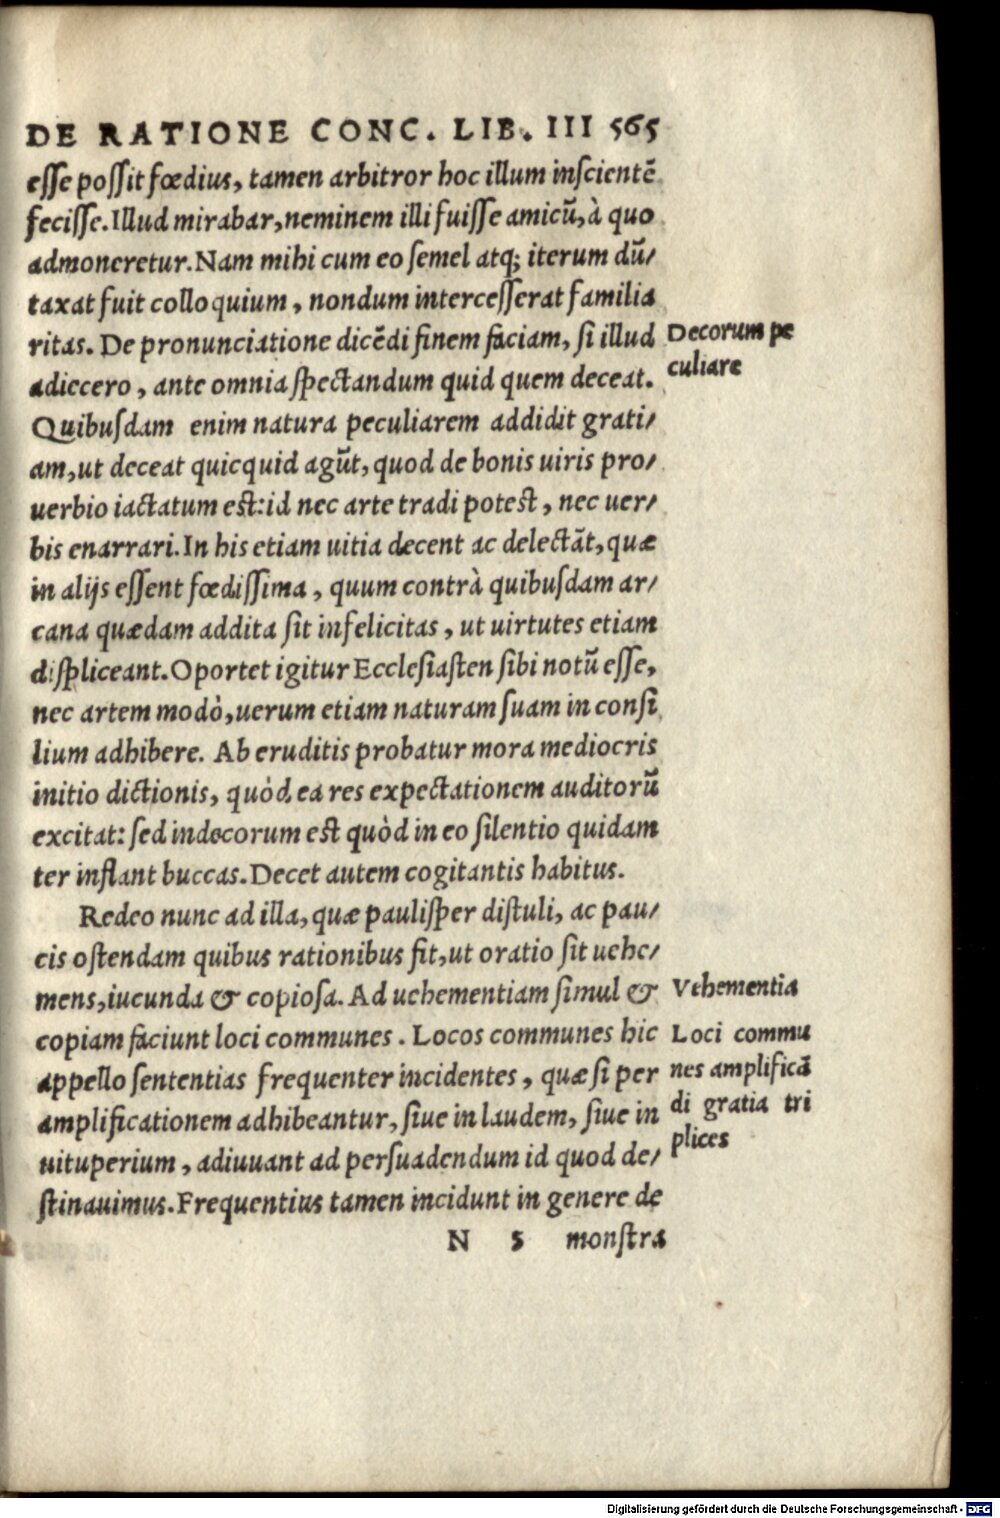 DE RATIONE CONC. LIB. III 565
esse possit fœdius, tamen arbitror hoc illum inscientē
fecisse. Illud mirabar, neminem illi fuisse amicū, à quo
admoneretur. Nam mihi cum eo semel atq; iterum dū/
taxat fuit colloquium, nondum intercesserat familia
ritas. De pronunciatione dicēdi finem faciam, si illud
adiecero, ante omnia spectandum quid quem deceat.
Decorum pe
culiare
Quibusdam enim natura peculiarem addidit grati/
am, ut deceat quicquid agūt, quod de bonis uiris pro/
uerbio iactatum est: id nec arte tradi potest, nec uer/
bis enarrari. In his etiam uitia decent ac delectāt, quæ
in alijs essent fœdissima, quum contrà quibusdam ar/
cana quædam addita sit infelicitas, ut uirtutes etiam
displiceant. Oportet igitur Ecclesiasten sibi notū esse,
nec artem modò, uerum etiam naturam suam in consi
lium adhibere. Ab eruditis probatur mora mediocris
initio dictionis, quòd ea res expectationem auditorū
excitat: sed indecorum est quòd in eo silentio quidam
ter inflant buccas. Decet autem cogitantis habitus.
Redeo nunc ad illa, quæ paulisper distuli, ac pau/
cis ostendam quibus rationibus fit, ut oratio sit uehe/
mens, iucunda & copiosa. Ad uehementiam simul &
copiam faciunt loci communes. Locos communes hic
appello sententias frequenter incidentes, quæ si per
amplificationem adhibeantur, siue in laudem, siue in
uituperium, adiuuant ad persuadendum id quod de/
stinauimus. Frequentius tamen incidunt in genere de
Vehementia
Loci commu
nes amplificā
di gratia tri
plices
N 5 monstra
Digitalisierung gefördert durch die Deutsche Forschungsgemeinschaft - DFG